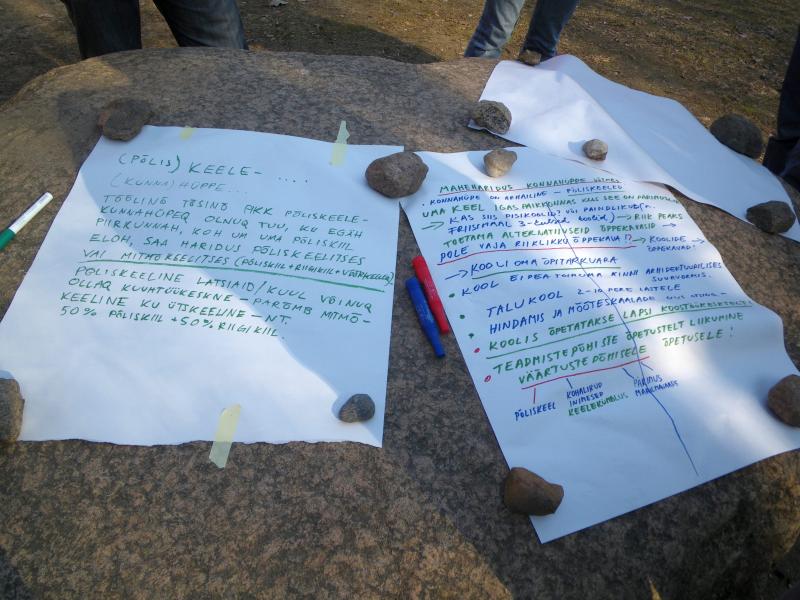 (PÕLIS) KEELE- ....
(KUNNA) HÜPPE...
TÕÕLINÕ TÕSINÕ PIKK PÕLISKEELE-
KUNNAHÜPEQ OLNUQ TUU, KU EGAH
PIIRKUNNAH, KOH UM UMA PÕLISKIIL
ELOH, SAA HARIDUS PÕLISKEELITSES
VAI MITMÕKEELITSES (PÕLISKIIL + RIIGIKIIL + VÕÕRKEELEQ)
PÕLISKEELINE LATSIAID/KUUL VÕINUQ
OLLAQ KUUHTÜÜKESKNE - PARÕMB MITMÕ-
KEELINE KU ÜTSKEELINE - NT.
50% PÕLISKIIL + 50% RIIGIKIIL.
MAHEHARIDUS KONNAHÜPPE
• KONNAHÜPE ON ARHAILINE - PÕLISKEELED
UMA KEEL IGAS PAIKKONNAS KUS SEE ON
KAS SIIS PISIKOOLID? VÕI PAINDLIKUD
FRIISIMAAL 3- koolid) → RIIK PEAKS
TOETAMA ALTERNATIIVSEID ÕPPEKAVASID →
POLE VAJA RIIKLIKKU ÕPPEKAVA!? → KOOLIDE
ÕPPEKAVAD!
→ KOOLI OMA ÕPITARKVARA
• KOOL EI PEA TOIMUMA KINNI ARHIDEKTUURILISES
SUURVORMIS.
TALUKOOL 2-10 PERE LASTELE
HINDAMIS JA MÕÕTESKAALADE
• KOOLIS ÕPETATAKSE LAPSI KOOSTÖÖKESKSELT!
• TEADMISTEPÕHISTE ÕPETUSTELT LIIKUMINE
VÄÄRTUSTE PÕHISELE ÕPETUSELE!
PÕLISKEEL
KOHALIKUD
INIMESED
KEELEKÜMBLUS
PÄRIMUS
MAAILMAVAADE